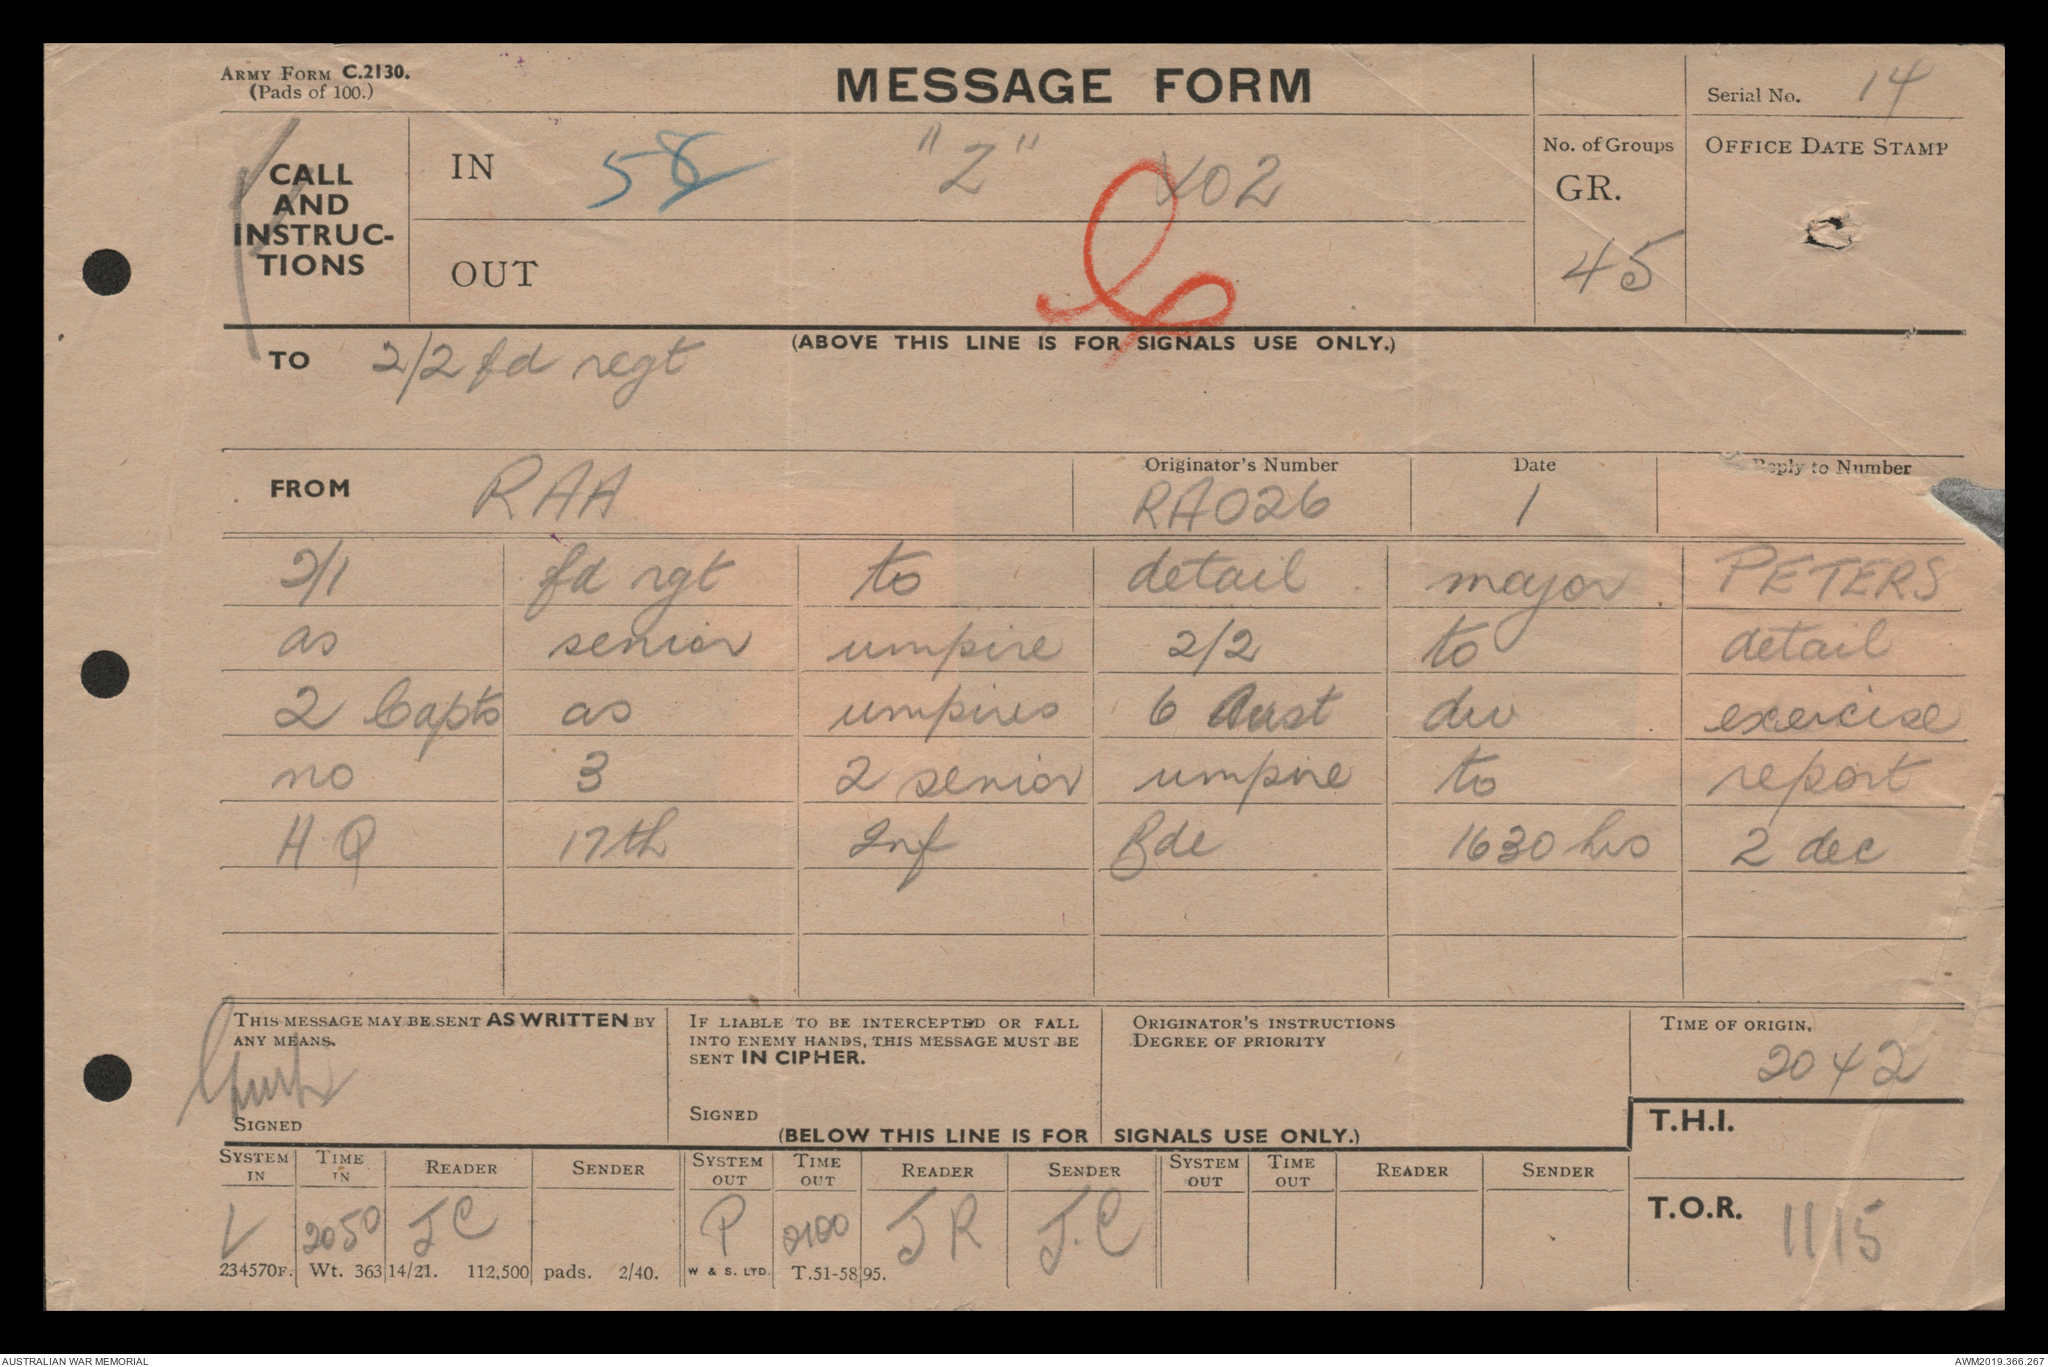 ARMY FORM C.2130.
(Pads of 100.)
MESSAGE FORM
Serial No. 14
CALL AND INSTRUC-TIONS
IN 58 "Z" V02
OUT
No. of Groups
GR.
45
OFFICE DATE STAMP
(ABOVE THIS LINE IS FOR SIGNALS USE ONLY.)
TO 2/2 fd regt
FROM RAA
Originator's Number RAO26
Date 1
Reply to Number
2/1 fd rgt to detail major PETERS
as senior umpire 2/2 to detail
2 Capts as umpires 6 Aust div exercise
no 3 2 senior umpire to report
H.Q 17th Inf Bde 1630 hrs 2 dec
THIS MESSAGE MAY BE SENT AS WRITTEN BY
ANY MEANS.
SIGNED
IF LIABLE TO BE INTERCEPTED OR FALL
INTO ENEMY HANDS, THIS MESSAGE MUST BE
SENT IN CIPHER.
SIGNED
ORIGINATOR'S INSTRUCTIONS
DEGREE OF PRIORITY
TIME OF ORIGIN.
2042
(BELOW THIS LINE IS FOR SIGNALS USE ONLY.)
T.H.I.
SYSTEM IN TIME IN READER SENDER SYSTEM OUT TIME OUT READER SENDER SYSTEM OUT TIME OUT READER SENDER
V 2050 JC P 2100 JR J.C
T.O.R. 1115
234570F. Wt. 36314/21. 112,500 pads. 2/40. W & S. LTD. T.51-5895.
AUSTRALIAN WAR MEMORIAL
AWM2019.366.267